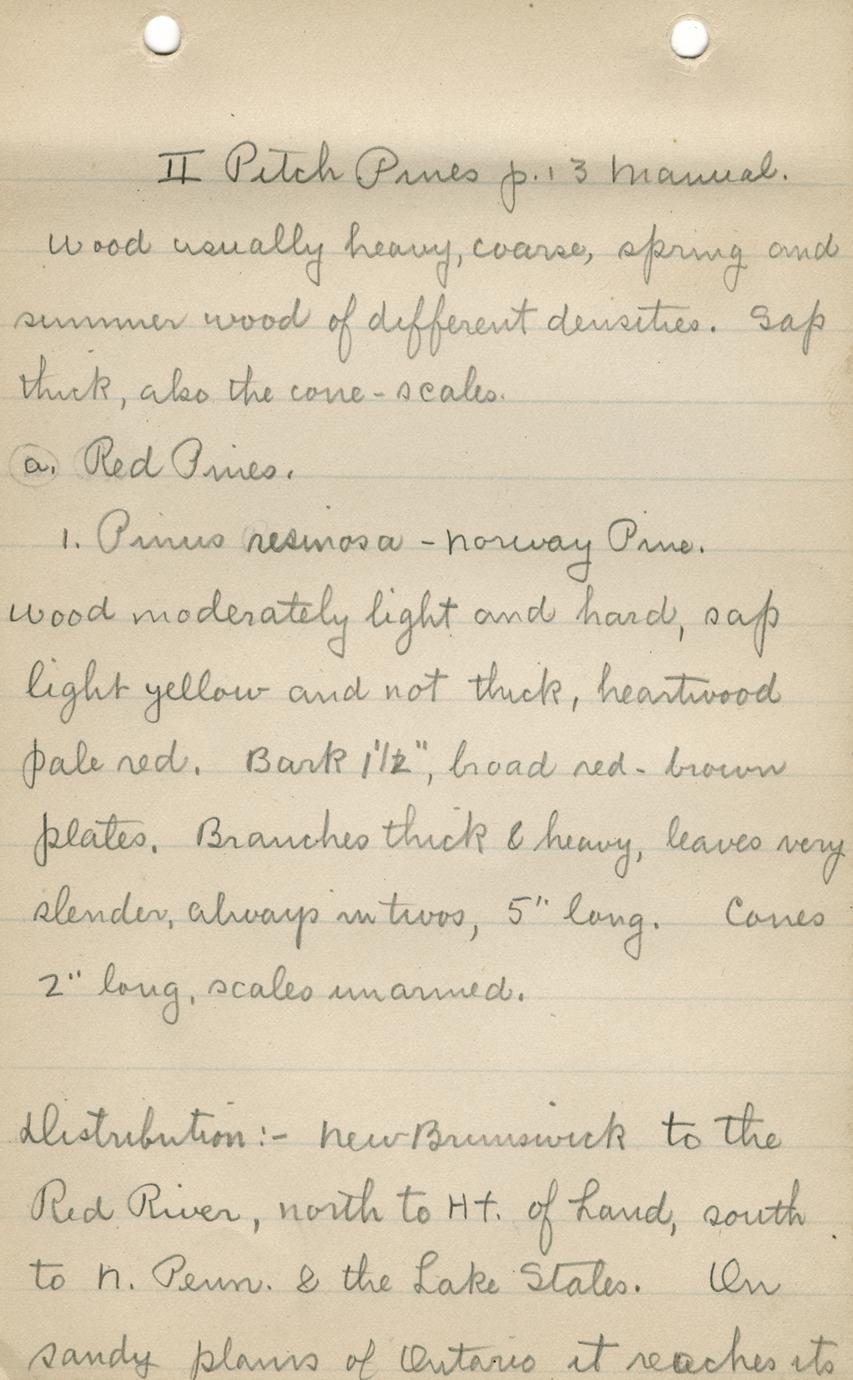 II Pitch Pines p. 13 Manual.
Wood usually heavy, coarse, spring and
summer wood of different densities. Sap
thick, also the cone-scales.
a. Red Pines.
1. Pinus resinosa - Norway Pine.
Wood moderately light and hard, sap
light yellow and not thick, heartwood
pale red. Bark 1 1/2", broad red-brown
plates. Branches thick & heavy, leaves very
slender, always in twos, 5" long. Cones
2" long, scales unarmed.
Distribution:- New Brunswick to the
Red River, north to Ht. of Land, south
to N. Penn. & the Lake States. On
sandy plains of Ontario it reaches its